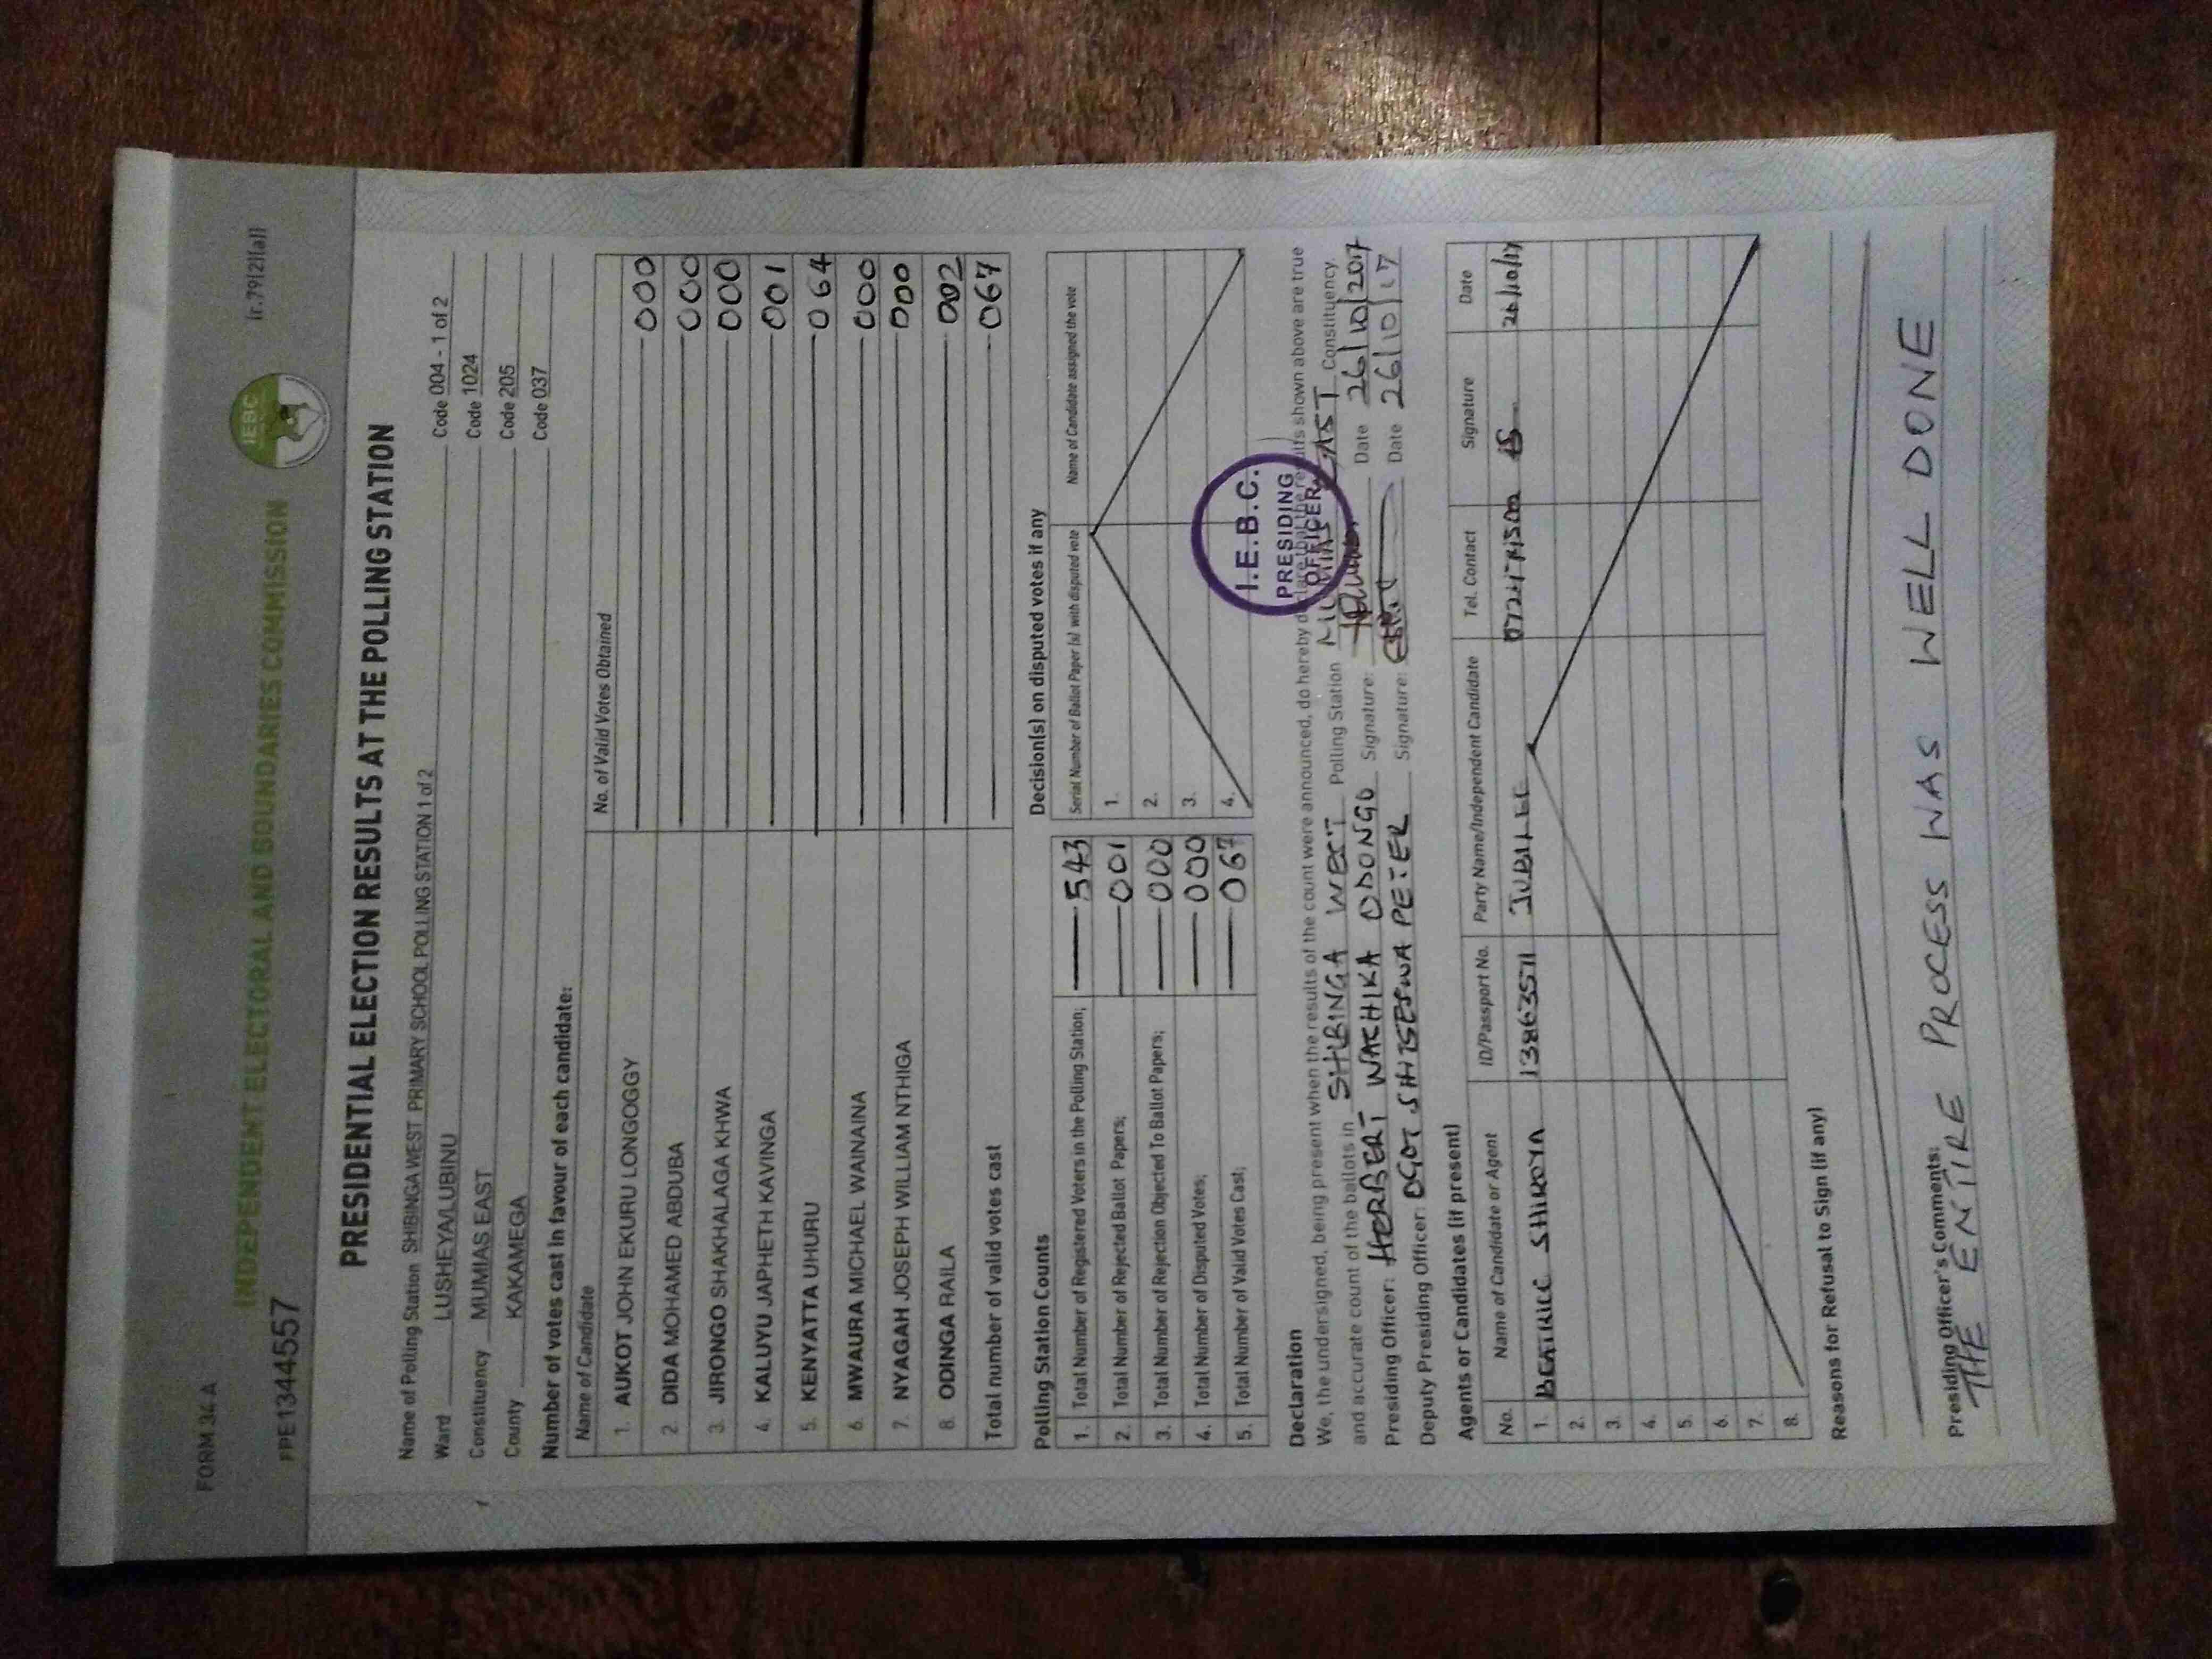 FORM 34A
INDEPENDENT ELECTORAL AND BOUNDARIES COMMISSION
IEBC
(r.79(2)(a))
PPE1344557
PRESIDENTIAL ELECTION RESULTS AT THE POLLING STATION
Name of Polling Station SHIBINGA WEST PRIMARY SCHOOL POLLING STATION 1 of 2 Code 004 - 1 of 2
Ward LUSHEYA/LUBINU Code 1024
Constituency MUMIAS EAST Code 205
County KAKAMEGA Code 037
Number of votes cast in favour of each candidate:
Name of Candidate No. of Valid Votes Obtained
1. AUKOT JOHN EKURU LONGOGGY 000
2. DIDA MOHAMED ABDUBA 000
3. JIRONGO SHAKHALAGA KHWA 000
4. KALUYU JAPHETH KAVINGA 001
5. KENYATTA UHURU 064
6. MWAURA MICHAEL WAINAINA 000
7. NYAGAH JOSEPH WILLIAM NTHIGA 000
8. ODINGA RAILA 002
Total number of valid votes cast 067
Polling Station Counts
1. Total Number of Registered Voters in the Polling Station; 543
2. Total Number of Rejected Ballot Papers; 001
3. Total Number of Rejection Objected To Ballot Papers; 000
4. Total Number of Disputed Votes; 000
5. Total Number of Valid Votes Cast; 067
Decision(s) on disputed votes if any
Serial Number of Ballot Paper (s) with disputed vote Name of Candidate assigned the vote
1.
2.
3.
4.
I.E.B.C.
PRESIDING
OFFICER
Declaration
We, the undersigned, being present when the results of the count were announced, do hereby declare that the results shown above are true
and accurate count of the ballots in SHIBINGA WEST Polling Station MUMIAS EAST Constituency.
Presiding Officer: HERBERT WACHIKA ODONGO Signature: Date 26/10/2017
Deputy Presiding Officer: PETER Signature: Date 26/10/17
Agents or Candidates (if present)
No. Name of Candidate or Agent ID/Passport No. Party Name/Independent Candidate Tel. Contact Signature Date
1. BEATRICE SHIROYA JUBILEE 26/10/17
2.
3.
4.
5.
6.
7.
8.
Reasons for Refusal to Sign (if any)
Presiding Officer's Comments:
THE ENTIRE PROCESS WAS WELL DONE